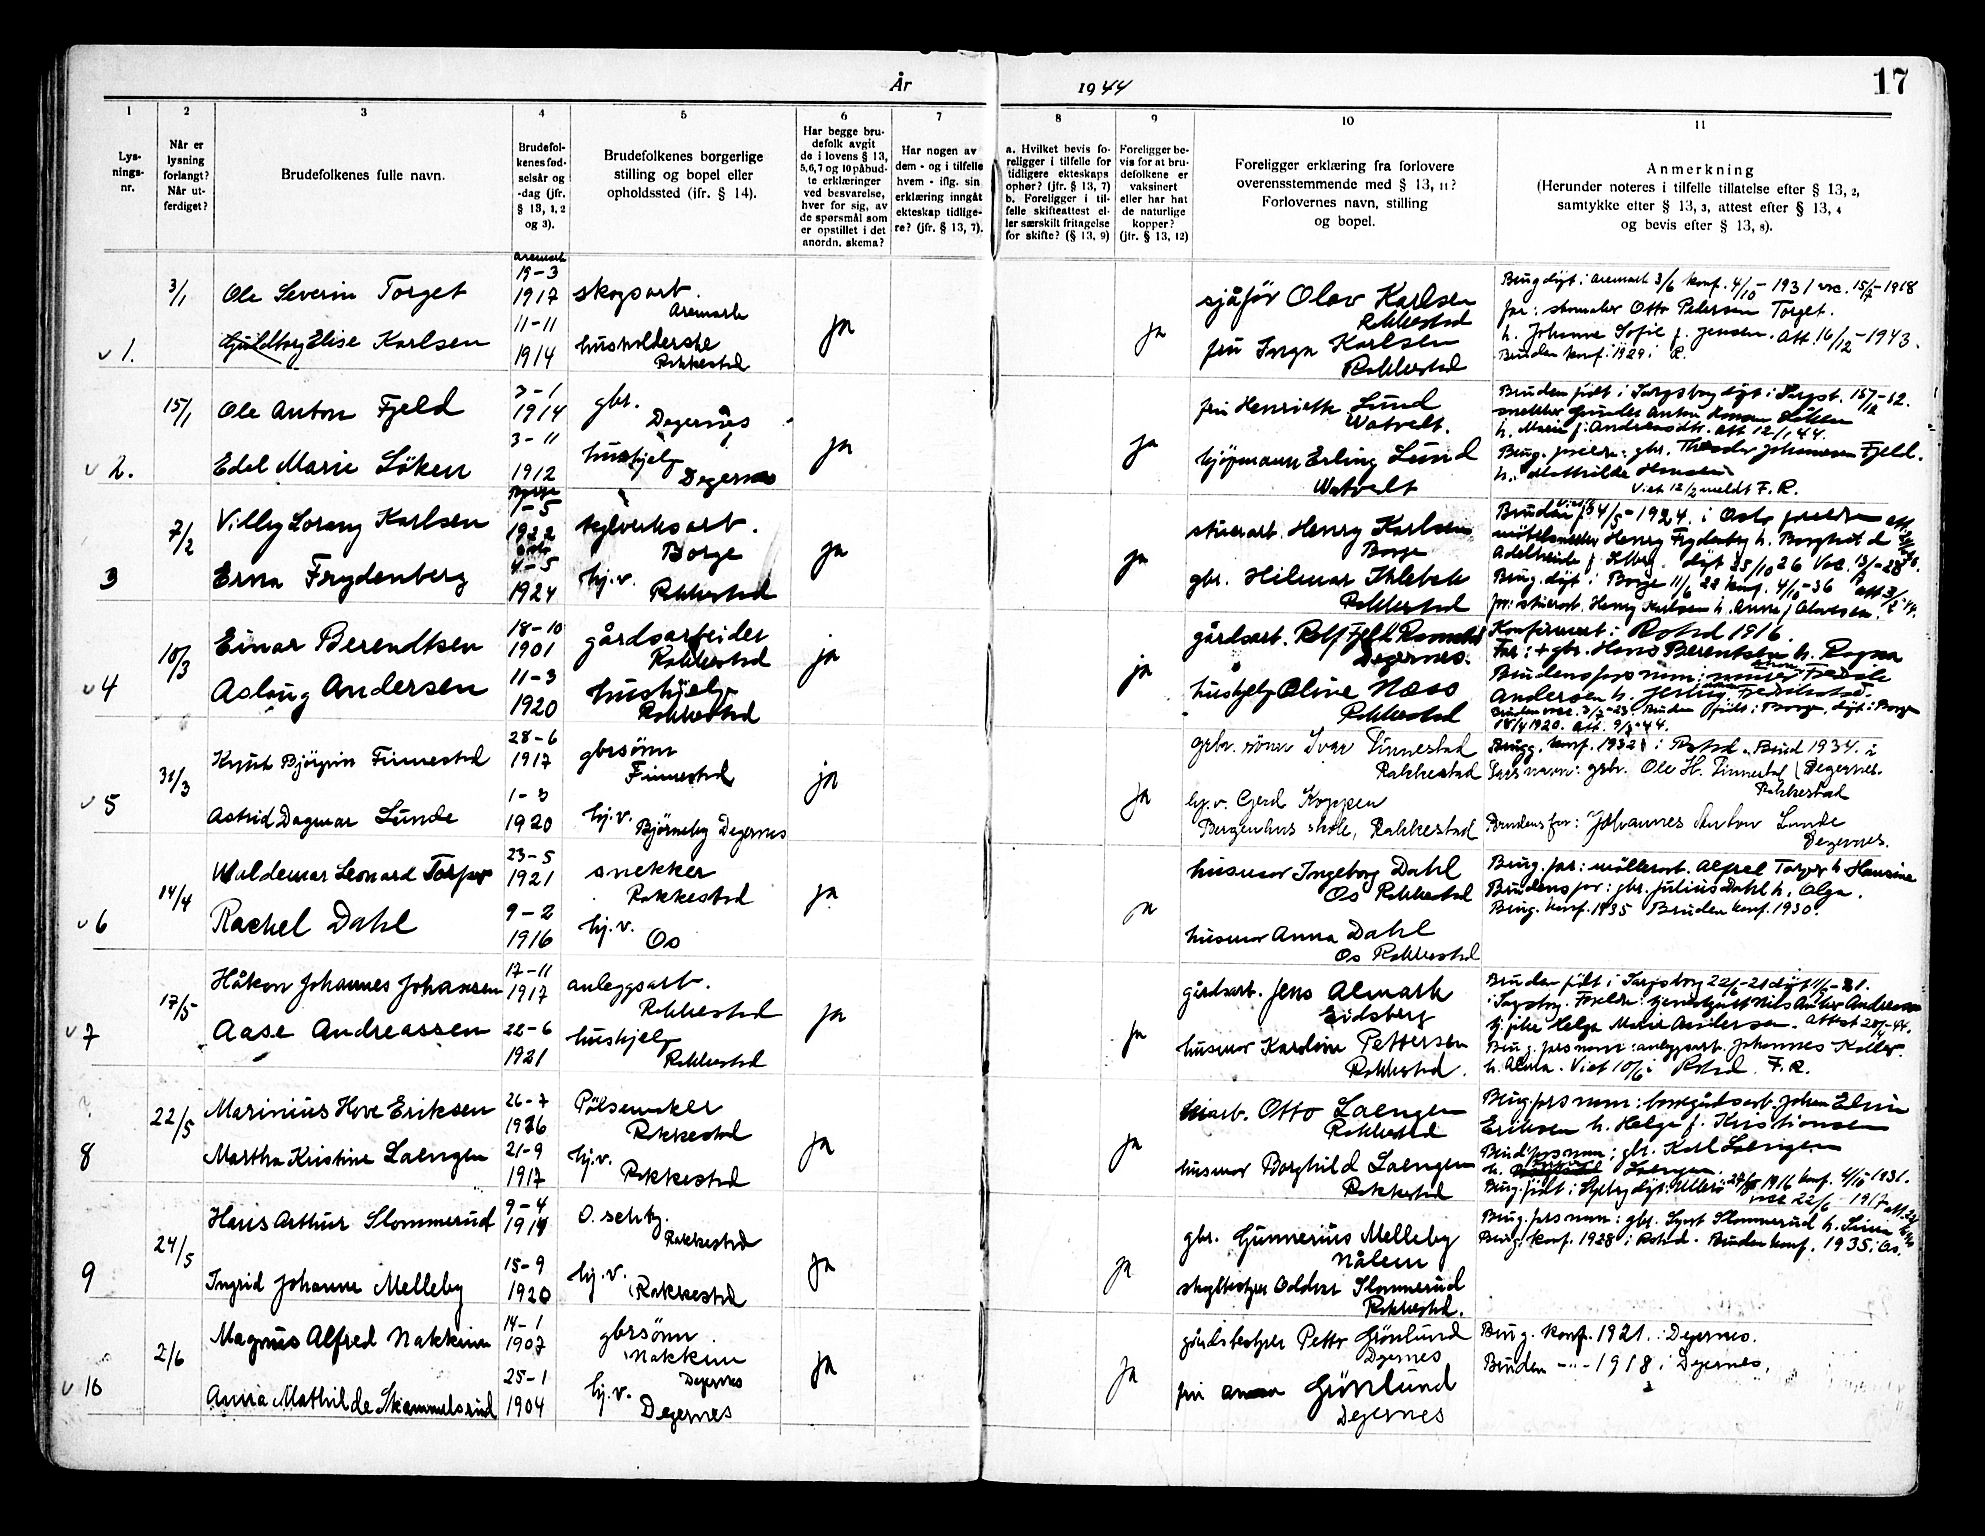 År 1944
17
1 2 3 4 5 6 7 8 9 10 11
Lys-
nings-
nr.
Når er
lysning
forlangt?
Når ut-
ferdiget?
Brudefolkenes fulle navn.
Brudefol-
kenes fød-
selsår og
-dag (jfr.
§ 13, 1, 2
og 3).
Brudefolkenes borgerlige
stilling og bopel eller
opholdssted (ifr. § 14).
Har begge bru-
defolk avgit
de i lovens § 13,
5,6,7 og 10 påbud-
te erklæringer
ved besvarelse,
hver for sig, av
de spørsmål som
er opstillet i det
anordn. skema?
Har nogen av
dem - og i tilfelle
hvem - iflg. sin
erklæring inngåt
ekteskap tidlige-
re? (jfr. § 13, 7).
a. Hvilket bevis fo-
religger i tilfelle for
tidligere ekteskaps
ophør? (jfr. § 13, 7)
b. Foreligger i til-
felle skifteattest el-
ler særskilt fritagelse
for skifte? (§ 13, 9)
Foreligger be-
vis for at bru-
defolkene er
vaksinert
eller har hat
de naturlige
kopper?
(jfr. § 13, 12)
Foreligger erklæring fra forlovere
overensstemmende med § 13, 11?
Forlovernes navn, stilling
og bopel.
Anmerkning
(Herunder noteres i tilfelle tillatelse efter § 13, 2,
samtykke efter § 13, 3, attest efter § 13, 4
og bevis efter § 13, 8).
v 1.
3/1
Ole Severin Torget
Aremark
19-3
1917
skogsarb.
Aremark
Elise Karlsen
11-11
1914
husholderske
Rakkestad
ja
ja
sjåfør Olav Karlsen
Rakkestad
fru Inga Karlsen
Rakkestad
Brug døpt i Aremark 3/6 konf. 4/10-1931 vac. 15/7-1918
far: skomaker Otto Pedersen Torget.
h. Johanne Sofie f. Jensen. Att. 16/12-1943.
Bruden konf. 1929 i R.
v 2.
15/1
Ole Anton Fjeld
3-1
1914
gbr.
Degernes
Edel Marie Löken
3-11
1912
hushjelp
Degernes
ja
ja
fru Henriette Lund
Watvelt.
kjöpmann Erling Lund
Watvelt
Bruden født i Sarpsborg døpt i Sarpsb. 15/12-12.
h. Marie f. Andreasdtr. att 12/1 44.
Brug. foreldre: gbr. Theodor Johannesen Fjeld.
h. Mathilde Hansen
Viet 12/2 meldt F.R.
3
7/2
Villy Lorang Karlsen
1-5
1922
Borge
Erna Frydenberg
Oslo
4-5
1924
hj.v.
Rakkestad
ja
ja
stuerarb. Henry Karlsen
Borge
gbr. Hilmar Kleback
Rakkestad
Bruden f. 4/5-1924 i Oslo foreldre
Henry Frydenberg h. Borghild
døpt 25/10 26 Vac. 13/1-28
Brug. døpt i Borge 11/6 22 konf. 4/10-36
far: stuerarb. Henry Karlsen h. Anna f.
v 4
10/3
Einar Berendtsen
18-10
1901
gårdsarbeider
Rakkestad
Aslaug Andersen
11-3
1920
hushjelp
Rakkestad
ja
ja
gårdsarb. Rolf Fjeld
Degernes.
hushjelp Oline Næss
Rakkestad
Konfirmert i Rakstd 1916.
Far: + gbr. Hans Berentsen h. Ragna
Brudens forsnavn:
Andersen h.
Bruden vac. 3/7-23. Bruden født i Borge, døpt i Borge
18/4 1920. att. 9/3-44.
v 5
31/3
Knut Björgvin Finnestad
28-6
1917
gbrsönn
Finnestad
Astrid Dagmar Lunde
1-3
1920
hj.v.
Björneby Degernes
ja
ja
gbr. sönn Ivar Finnestad
Rakkestad
hj.v. Gerd Koppen
Bergenhus skole, Rakkestad
Brugg. konf. 1932 i Rakstd. Brud 1934. i
Farsnavn: gbr. Ole H. Finnestad Degernes.
Rakkestad
Brudens far: Johannes Anton Lunde
Degernes.
v 6
14/4
Waldemar Leonard Torper
23-5
1921
snekker
Rakkestad
Rachel Dahl
9-2
1916
hj.v.
Os
ja
ja
husmor Ingeborg Dahl
Os Rakkestad
husmor Anna Dahl
Os Rakkestad
Brug. far: möllerarb. Alfred Torper h. Hansine
Brudens far: gbr. Julius Dahl h. Olga.
Brug. konf. 1935 Bruden konf. 1930.
v 7
17/5
Håkon Johannes Johansen
17-11
1917
anleggsarb.
Rakkestad
Aase Andreassen
22-6
1921
hushjelp
Rakkestad
ja
ja
gårdsarb. Jens Almark
Eidsberg
husmor Karoline Pettersen
Rakkestad.
Bruden født i Sarpsborg 22/6-21 døpt 11/9-21.
i Sarpsborg. Foreldre: Nils Anker Andreassen
Helga Marie Andersen. Attest
Brug. forsnavn: anleggsarb. Johannes
h. Alma. Viet 10/6 i Rakstd. F.R.
8
22/5
Marinius Hove Eriksen
26-7
1916
Pölsemaker
Rakkestad
Martha Kristine Laengen
21-9
1917
hj.v.
Rakkestad
ja
ja
Otto Laengen
Rakkestad
husmor Borghild Laengen
Rakkestad
Brug. forsnavn: Johan Elvin
Eriksen h. Helga f. Kristiansen
Brud forsnavn: gbr. Karl Laengen
h. Laengen.
1916 konf. 4/10-1931.
vac 22/6-1917
9
24/5
Hans Arthur Slommerud
9-4
1914
Rakkestad
Ingrid Johanne Melleby
15-9
1920
hj.v.
Rakkestad
ja
ja
gbr. Gunnerius Melleby
Nålem
Oddvar Slommerud
Rakkestad.
Brug. forsnavn: gbr. Slommerud h.
Brug. konf. 1928 i Rakstd. Bruden konf. 1935 i Os.
v 10
2/6
Magnus Alfred Nakkim
14-1
1907
gbrsönn.
Nakkim
Degernes
Anna Mathilde Skammelsrud
25-1
1904
hj.v.
Degernes
ja
ja
gårdsbestyrer Petter Grönlund
Degernes
fru Anna Grönlund
Degernes
Brug. konf. 1921. i Degernes.
Bruden -"- 1918 i Degernes.